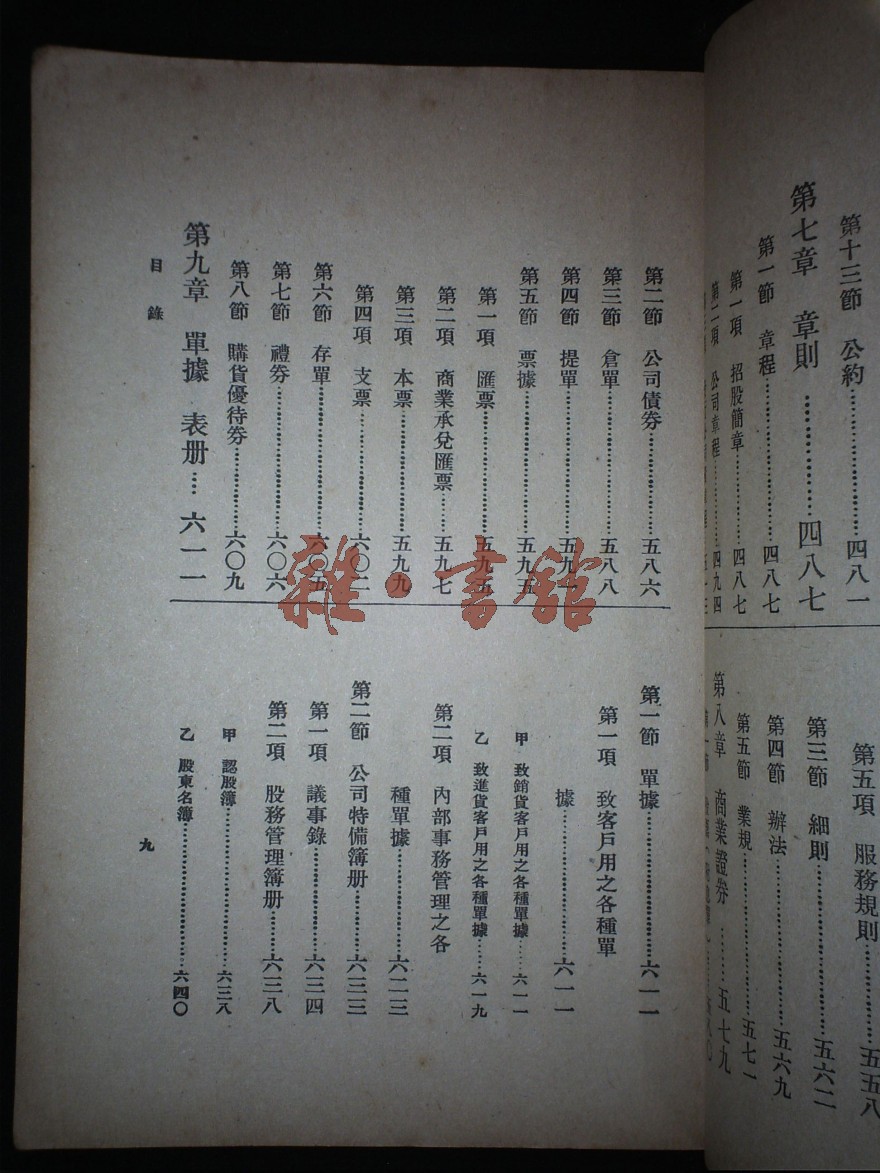 第十三節 公約……四八一
第七章 章則……四八七
第一節 章程……四八七
第一項 招股簡章……四八七
第二項 公司章程……四九四
第五項 服務規則……五五八
第三節 細則……五六二
第四節 辦法……五六九
第五節 業規……五七一
第八章 商業證券……五七九
第二節 公司債券……五八六
第三節 倉單……五八八
第四節 提單……五九
第五節 票據……五九五
第一項 匯票……五九五
第二項 商業承兌匯票……五九七
第三項 本票……五九九
第四項 支票……六〇二
第六節 存單……六〇五
第七節 禮券……六〇六
第八節 購貨優待券……六〇九
第九章 單據 表册……六一一
第一節 單據……六一一
第一項 致客戶用之各種單
據……六一一
甲 致銷貨客戶用之各種單據……六一一
乙 致進貨客戶用之各種單據……六一九
第二項 內部事務管理之各
種單據……六二三
第二節 公司特備簿册……六三三
第一項 議事錄……六三四
第二項 股務管理簿册……六三八
甲 認股簿……六三八
乙 股東名簿……六四〇
目錄
九
雜·書館